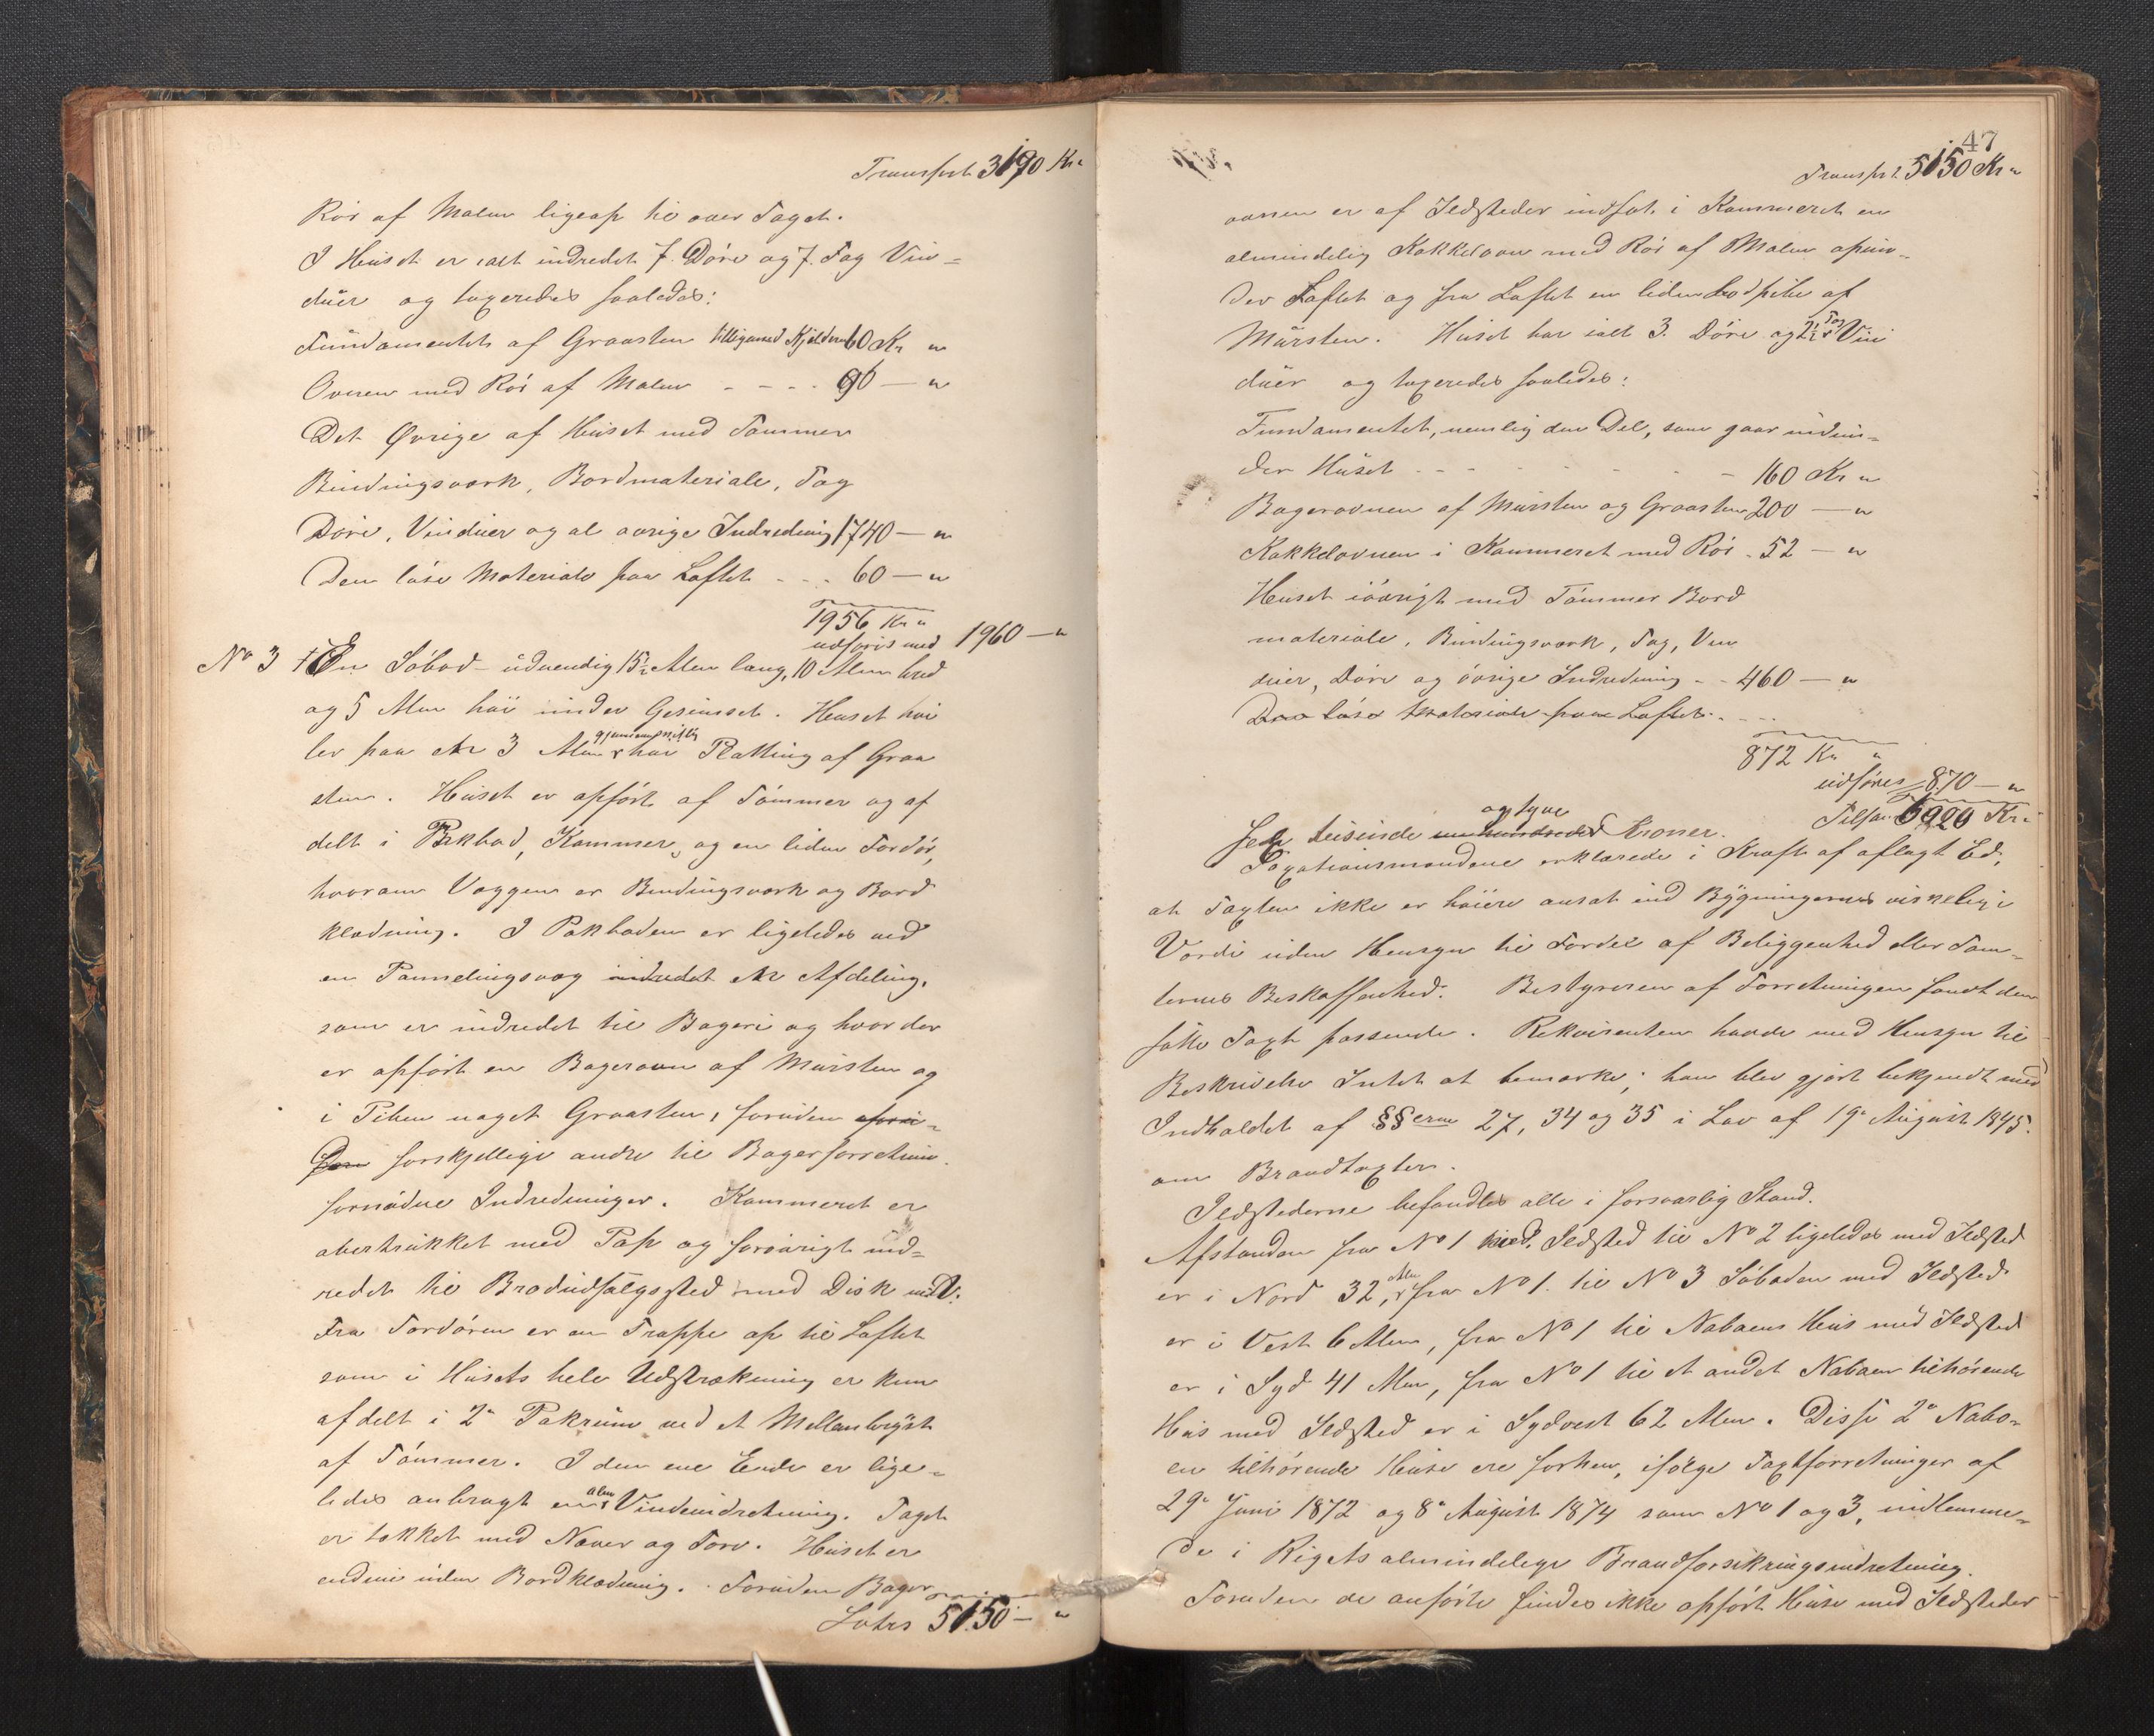 Transport 3190 Kr "
Rör af Malm ligeop til over Taget.
I Huset er ialt indredet 7. Döre og 7. Fag Vin=
duer og taxeredes saaledes:
Fundamentet af Graasten tilligemed Kjelderen 60 Kr "
Ovnen med Rör af Malm - - - . 96 — "
Det Øvrige af Huset med Tømmer
Bindingsværk, Bordmateriale, Tag
Døre, Vinduer og al øvrige Indredning 1740 — "
Den löse Materiale paa Loftet - - - 60 — "
1956 Kr "
udföris med 1960 — "
No 3 En Söbod udvendig 15½ Alen lang, 10 Alen bred
og 5 Alen höi under Gesimset. Huset hvi
ler paa et 3 Alen gjennemsnitlig höi Platting af Graa
sten. Huset er opfört af Tömmer og af
delt i Pakbod, Kammer, og en liden Fordör,
hvorom Væggene er Bindingsværk og Bord
klædning. I Pakboden er ligeledes ved
en Pannelingsvæg indredet et Afdeling,
som er indredet til Bageri og hvor der
er opfört en Bagerovn af Mursten og
i Piben noget Graasten, foruden foru=
den forskjellige andre til Bagerforretnin.
fornödne Indredninger. Kammeret er
overtrukket med Pap og forövrigt ind=
redet til Brödudsalgssted med Disk m.v.
Fra Fordören er en Trappe op til Loftet
som i Husets hele Udstrækning er kun
afdelt i 2 Pakrum ved et Mellembryst
af Tömmer. I den ene Ende er lige=
ledes anbragt en alm Vindeindretning. Taget
er tækket med Næver og Torv. Huset er
endnu uden Bordklædning. Foruden Bager
Latus 5150 — "
47
Transpt. 5150 Kr "
ovnen er af Ildsteder indsat i Kammeret en
almindelig Kakkelovn med Rör af Malm opun=
der Loftet og fra Loftet en liden Lodpibe af
Mursten. Huset har ialt 3. Döre og 2½ Fag Vin
duer og taxeredes saaledes:
Fundamentet, nemlig den Del, som gaar indun=
der Huset - - - - - - - 160 Kr "
Bagerovnen af Mursten og Graasten 200 — "
Kakkelovnen i Kammeret med Rör . 52 — "
Huset iövrigt med Tömmer Bord
materiale, Bindingsværk, Tag, Vin
duer, Döre og övrige Indredning - - 460 — "
Den löse Materiale paa Loftet . - - -
872 Kr "
udföres 870 — "
Tilsa. 6020 Kr "
Sex tusinde en hundrede og tyve Kroner.
Taxationsmændene erklærede i Kraft af aflagt Ed,
at Taxten ikke er höiere ansat end Bygningernes virkelige
Værdi uden Hensyn til Fordel af Beliggenhed eller Tom=
ternes Beskaffenhed. Bestyreren af Forretningen fandt den
satte Taxt passende. Rekvirenten havde med Hensyn til
Beskrivelse Intet at bemærke; han blev gjort bekjendt med
Indholdet af §§erne 27, 34 og 35 i Lov af 19 August 1845.
om Brandtaxter.
Ildstederne befandtes alle i forsvarlig Stand.
Afstanden fra No 1 med Ildsted til No 2 ligeledes med Ildsted
er i Nord 32 Alen, fra No 1. til No 3 Söboden med Ildsted
er i Vest 6 Alen, fra No 1 til Naboens Hus med Ildsted
er i Syd 41 Alen, fra No 1 til et andet Naboen tilhörende
Hus med Ildsted er i Sydvest 62 Alen. Disse 2 Nabo=
en tilhörende Huse ere forhen, ifölge Taxtforretninger af
29 Juni 1872 og 8 August 1874 som No 1 og 3, indlemme=
de i Rigets almindelige Brandforsikringsindretning.
Foruden de anförte findes ikke opfört Huse med Ildsteder